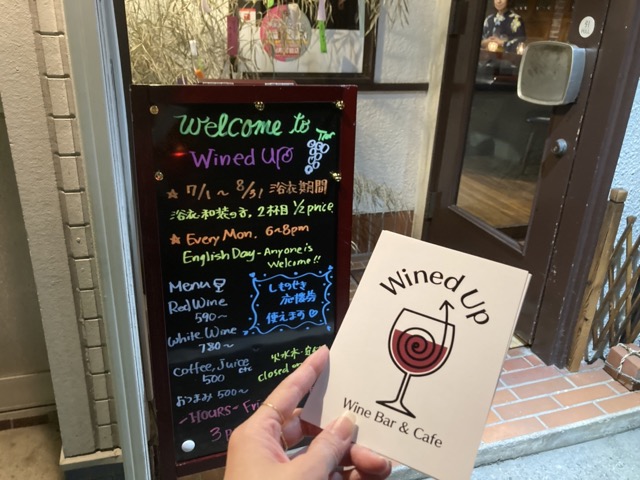 Welcome to The
Wined Up
★ 7/1 ~ 8/31 浴衣期間
浴衣・和装の方、2杯目 1/2 price
★ Every Mon. 6~8pm
English Day - Anyone is
Welcome!!
Menu
Red Wine
590~
White Wine
780~
Coffee, Juice etc
500
おつまみ 500~
しもきたざわ
応援券
使えます
火水木・
closed
-HOURS- Fri
3p
Wined Up
Wine Bar & Cafe